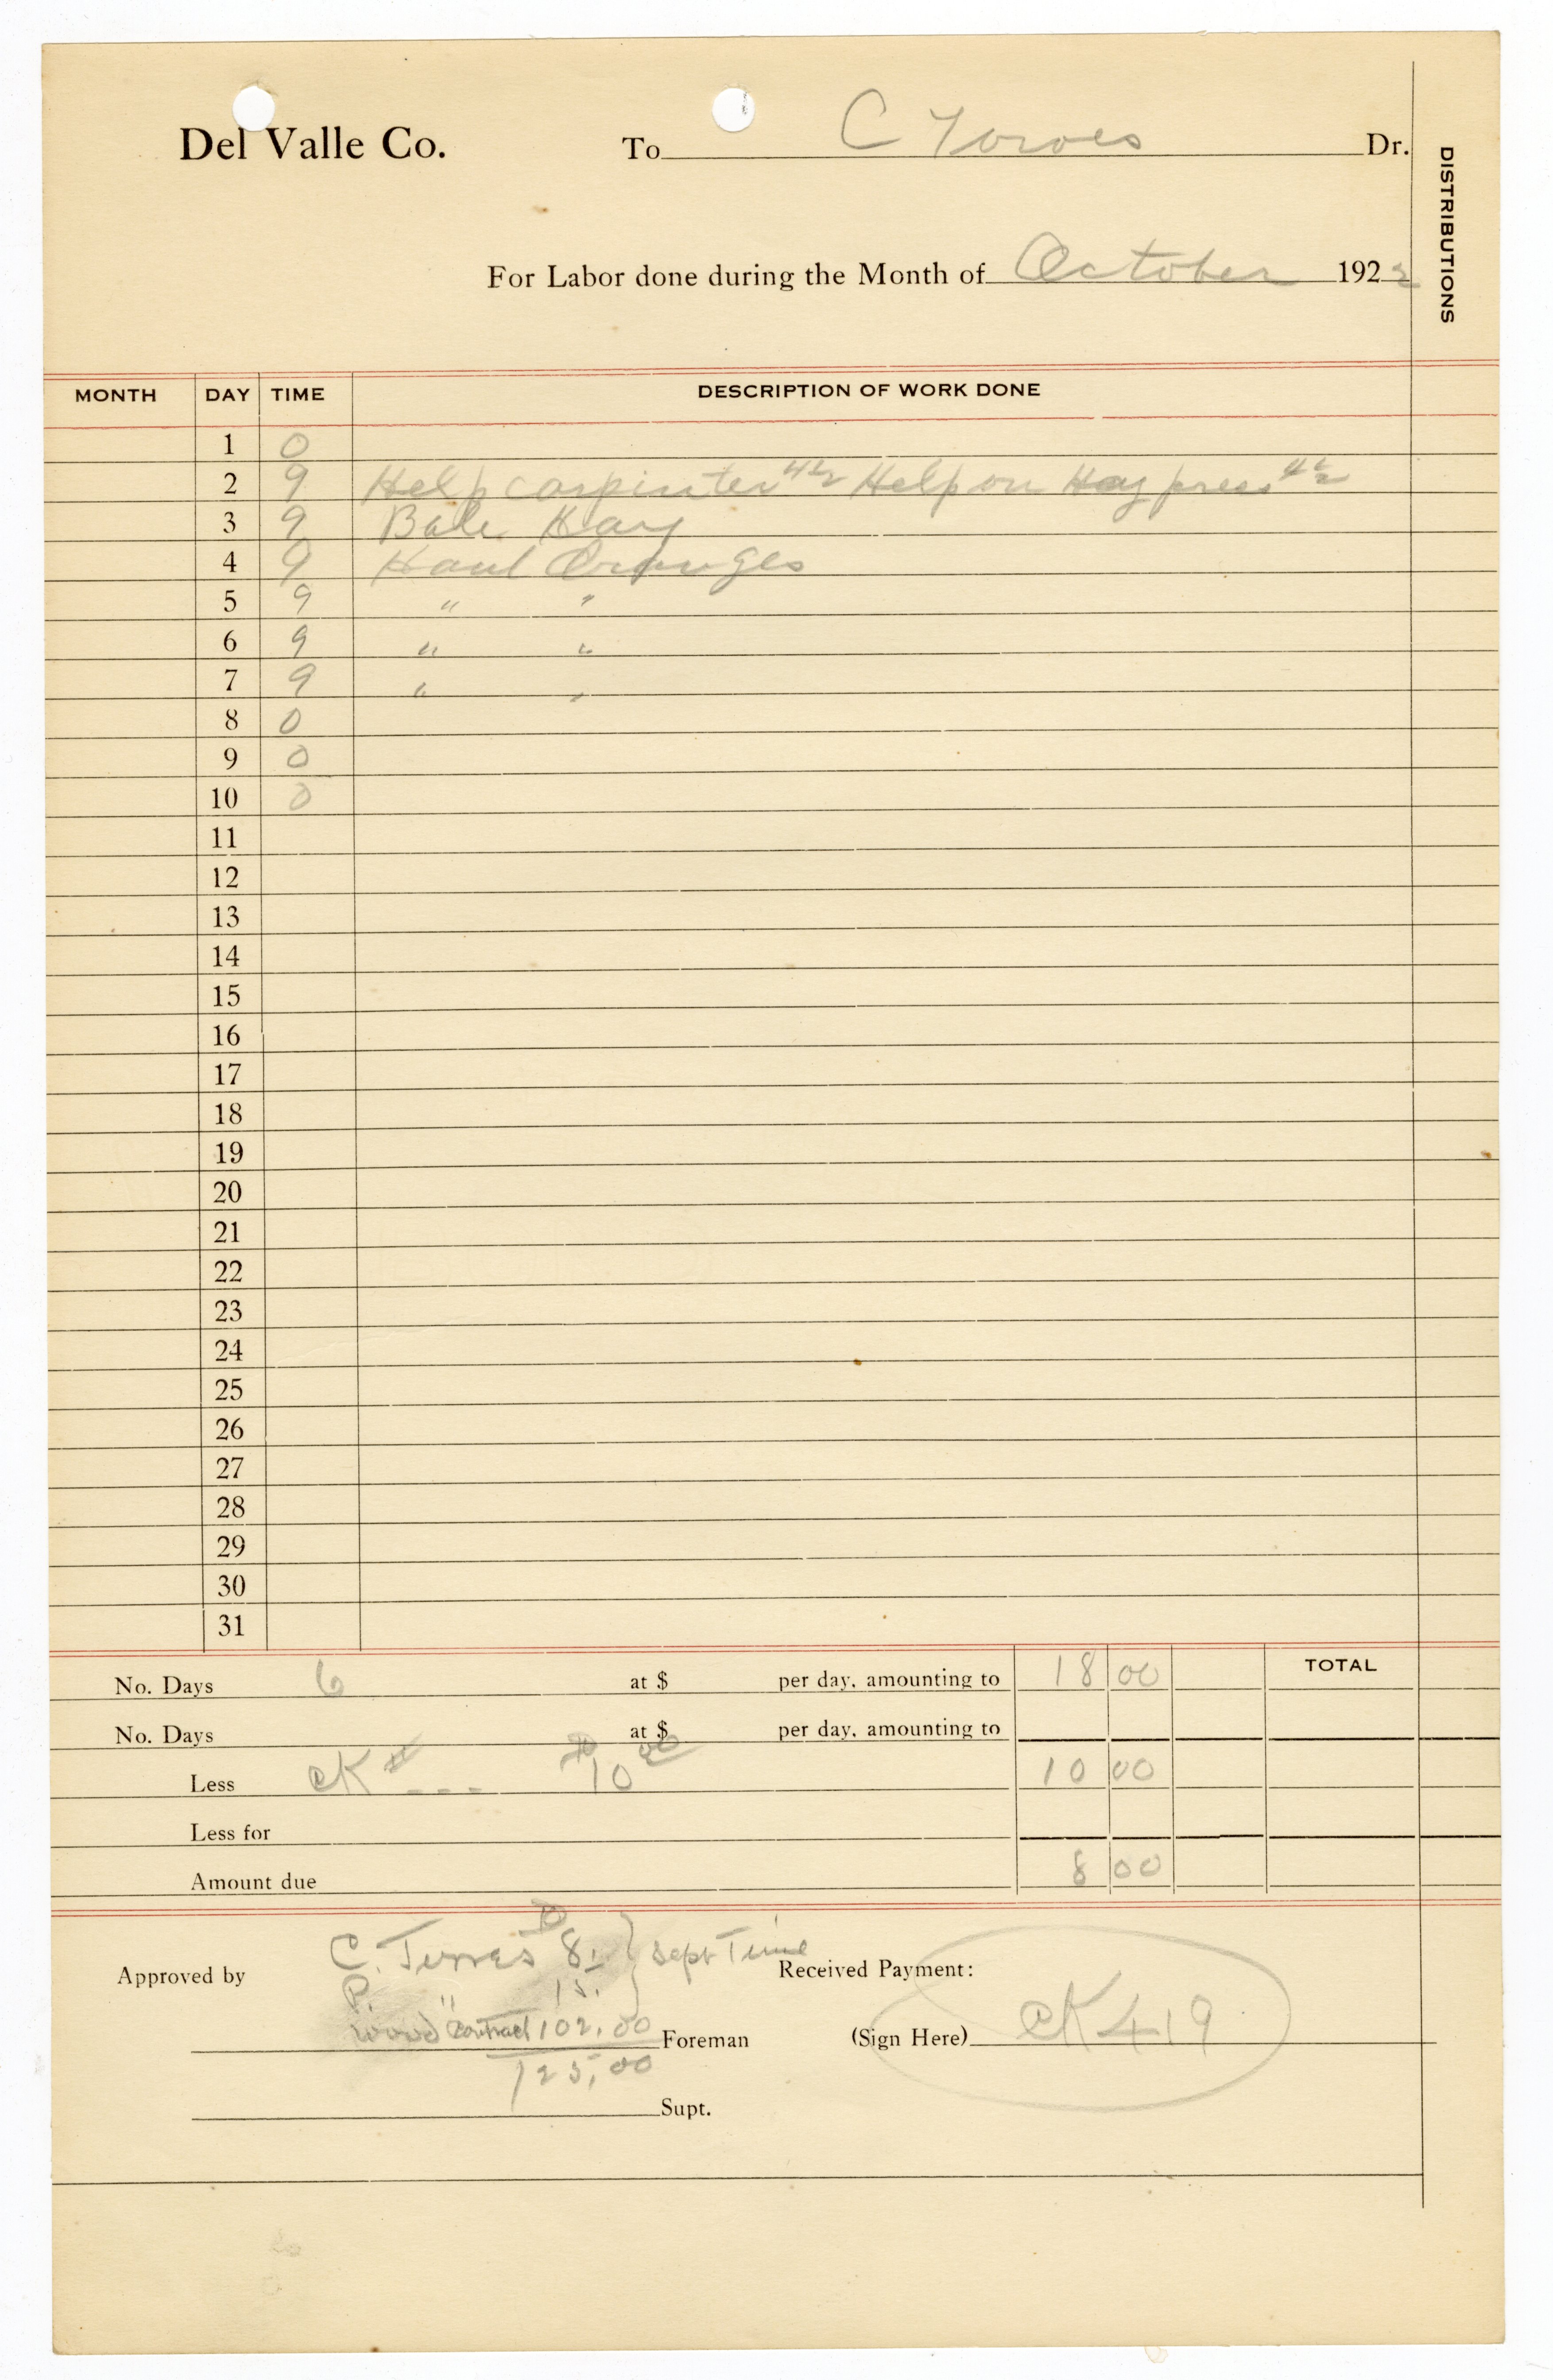 Del Valle Co. To C Torres Dr.
DISTRIBUTIONS
For Labor done during the Month of October 1922
MONTH DAY TIME DESCRIPTION OF WORK DONE
1 0
2 9 Help carpinter 4½ Help on Hay press 4½
3 9 Bale Hay
4 9 Haul Oranges
5 9 " "
6 9 " "
7 9 " "
8 0
9 0
10 0
11
12
13
14
15
16
17
18
19
20
21
22
23
24
25
26
27
28
29
30
31
No. Days 6 at $ per day, amounting to 18 00 TOTAL
No. Days at $ per day, amounting to
Less CK # --- $10 00 10 00
Less for
Amount due 8 00
Approved by C. Torres $8. } Sept Time Received Payment:
P. " 15. }
wood contract 102.00 Foreman (Sign Here) CK 419
125.00
Supt.